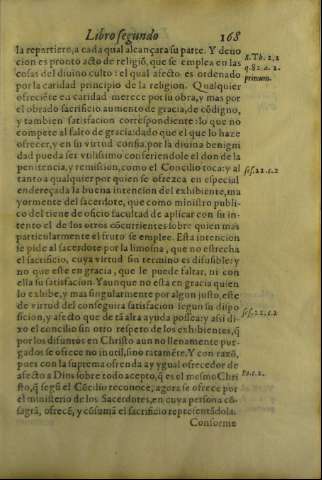 Libro segundo 168
la repartiere, a cada qual alcançara su parte. Y deuo
cion es pronto acto de religiõ, que se emplea en las
cosas del diuino culto: el qual afecto es ordenado
por la caridad principio de la religion. Qualquier
ofreciẽte en caridad merece por su obra, y mas por
el obrado sacrificio aumento de gracia, de cõdigno,
y tambien satisfacion correspondiente: lo que no
compete al falto de gracia: dado que el que lo haze
ofrecer, y en su virtud confia, por la diuina benigni
dad pueda ser vtilissimo confiriendole el don de la
penitencia, y remission, como el Concilio toca: y al
tanto a qualquier por quien se ofrezca en especial
endereçada la buena intencion del exhibente, ma
yormente del sacerdote, que como ministro publi
co del tiene de oficio facultad de aplicar con su in-
tento el de los otros cõcurrentes sobre quien mas
particularmente el fruto se emplee. Esta intencion
se pide al sacerdote por la limosna, que no estrecha
el sacrificio, cuya virtud sin termino es difusible: y
no que este en gracia, que le puede faltar, ni con
ella su satisfacion. Y aunque no esta en gracia quien
lo exhibe, y mas singularmente por algun justo, este
de virtud del conseguira satisfacion segun su dispo
sicion, y afecto que de tã alta ayuda possea: y assi di
xo el concilio sin otro respeto de los exhibientes, q̃
por los difuntos en Christo aun no llenamente pur-
gados se ofrece no inutil, sino ratamẽte. Y con razõ,
pues con la suprema ofrenda ay ygual ofrecedor de
afecto a Dios sobre todo acepto, q̃ es el mesmo Chri
sto, q̃ segũ el Cõcilio reconoce, agora se ofrece por
el ministerio de los Sacerdotes, en cuya persona cõ-
sagrã, ofrecẽ, y cõsumã el sacrificio representãdola.
Conforme
S. Th. 2.2
q. 82. a. 2.
primum.
ses. 22. c. 2
ses. 22. c. 2